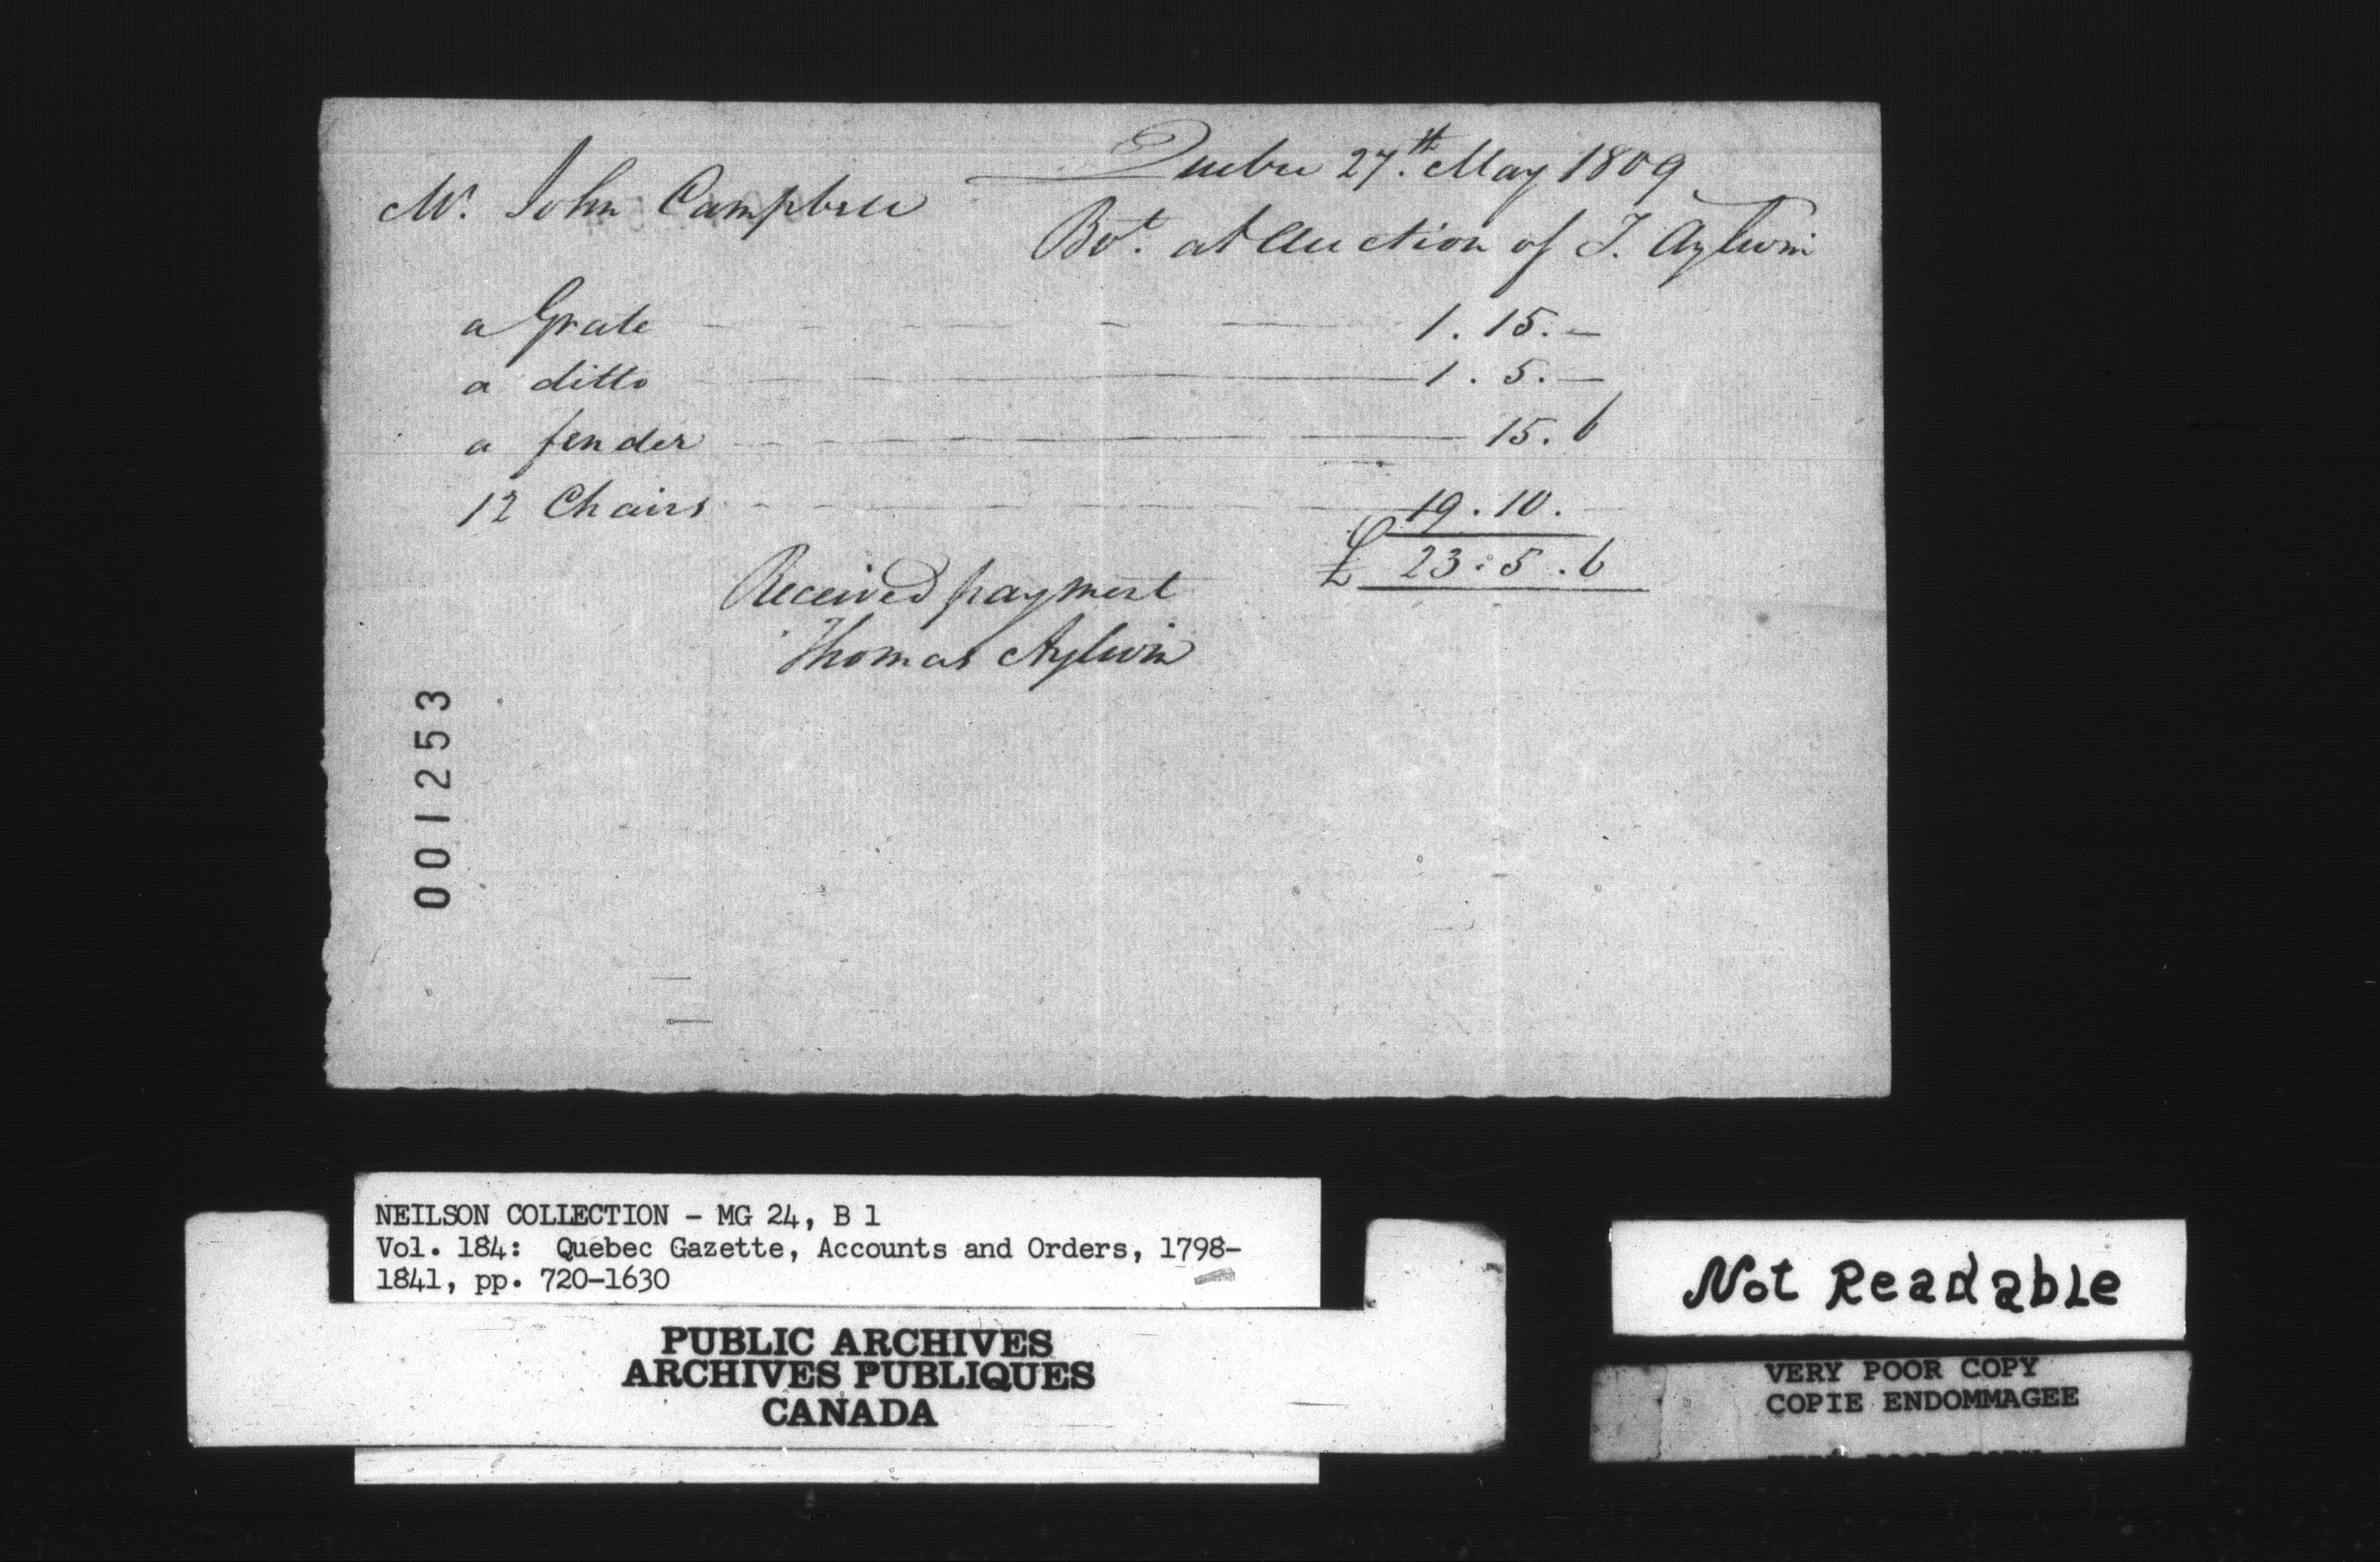 Quebec 27th. May 1809
Mr. John Campbell
Bot. at Auction of T. Aylwin
a Grate 1. 15. —
a ditto 1. 5. —
a fender 15. 6
12 Chairs 19. 10.
£ 23: 5. 6
Received payment
Thomas Aylwin
001253
NEILSON COLLECTION - MG 24, B 1
Vol. 184: Quebec Gazette, Accounts and Orders, 1798-
1841, pp. 720-1630
PUBLIC ARCHIVES
ARCHIVES PUBLIQUES
CANADA
Not Readable
VERY POOR COPY
COPIE ENDOMMAGEE